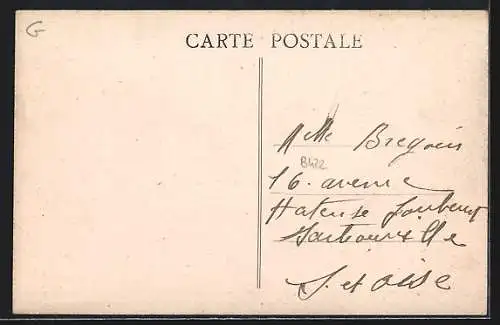 G
CARTE POSTALE
Melle Bregoin
B422
16. avenue
Hortense Foubert
Sartrouville
S. et Oise